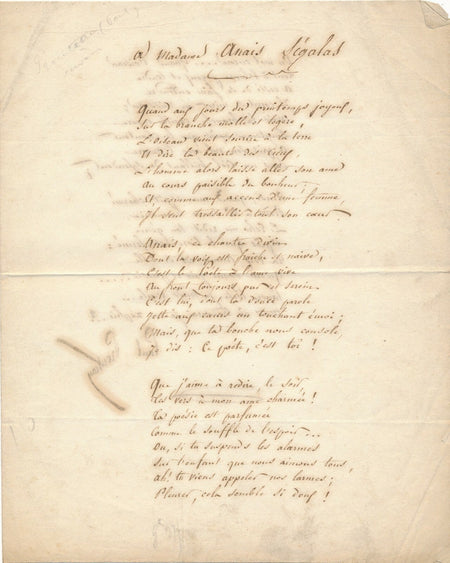 A Madame Anaïs Ségalas
Quand aux jours du printemps joyeux,
Sur la branche molle et légère,
L'oiseau vient sourire à la terre
Et dire la beauté des cieux,
L'homme alors laisse aller son ame
Au cours paisible du bonheur;
Et comme aux accens d'une femme,
Il sent tressaillir tout son cœur.
Anaïs, ce chantre divin
Dont la voix est fraîche et naïve,
C'est le Poète à l'ame vive
Au front toujours pur et serein.
C'est lui, dont la douce parole
Jette aux cœurs un touchant émoi;
Mais, que ta bouche nous console,
Je dis: Ce poète, c'est toi!
Que j'aime à redire, le soir
Tes vers à mon ame charmée!
Ta poésie est parfumée
Comme le souffle de l'espoir...
Ou, si tu suspends les alarmes
Sur l'enfant que nous aimons tous,
Ah! tu viens appeler nos larmes;
Pleurer, cela semble si doux!